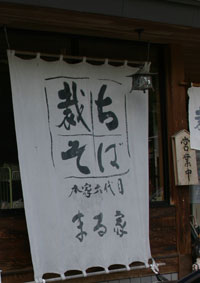 裁ち
そば
本家六代目
まる家
営業中